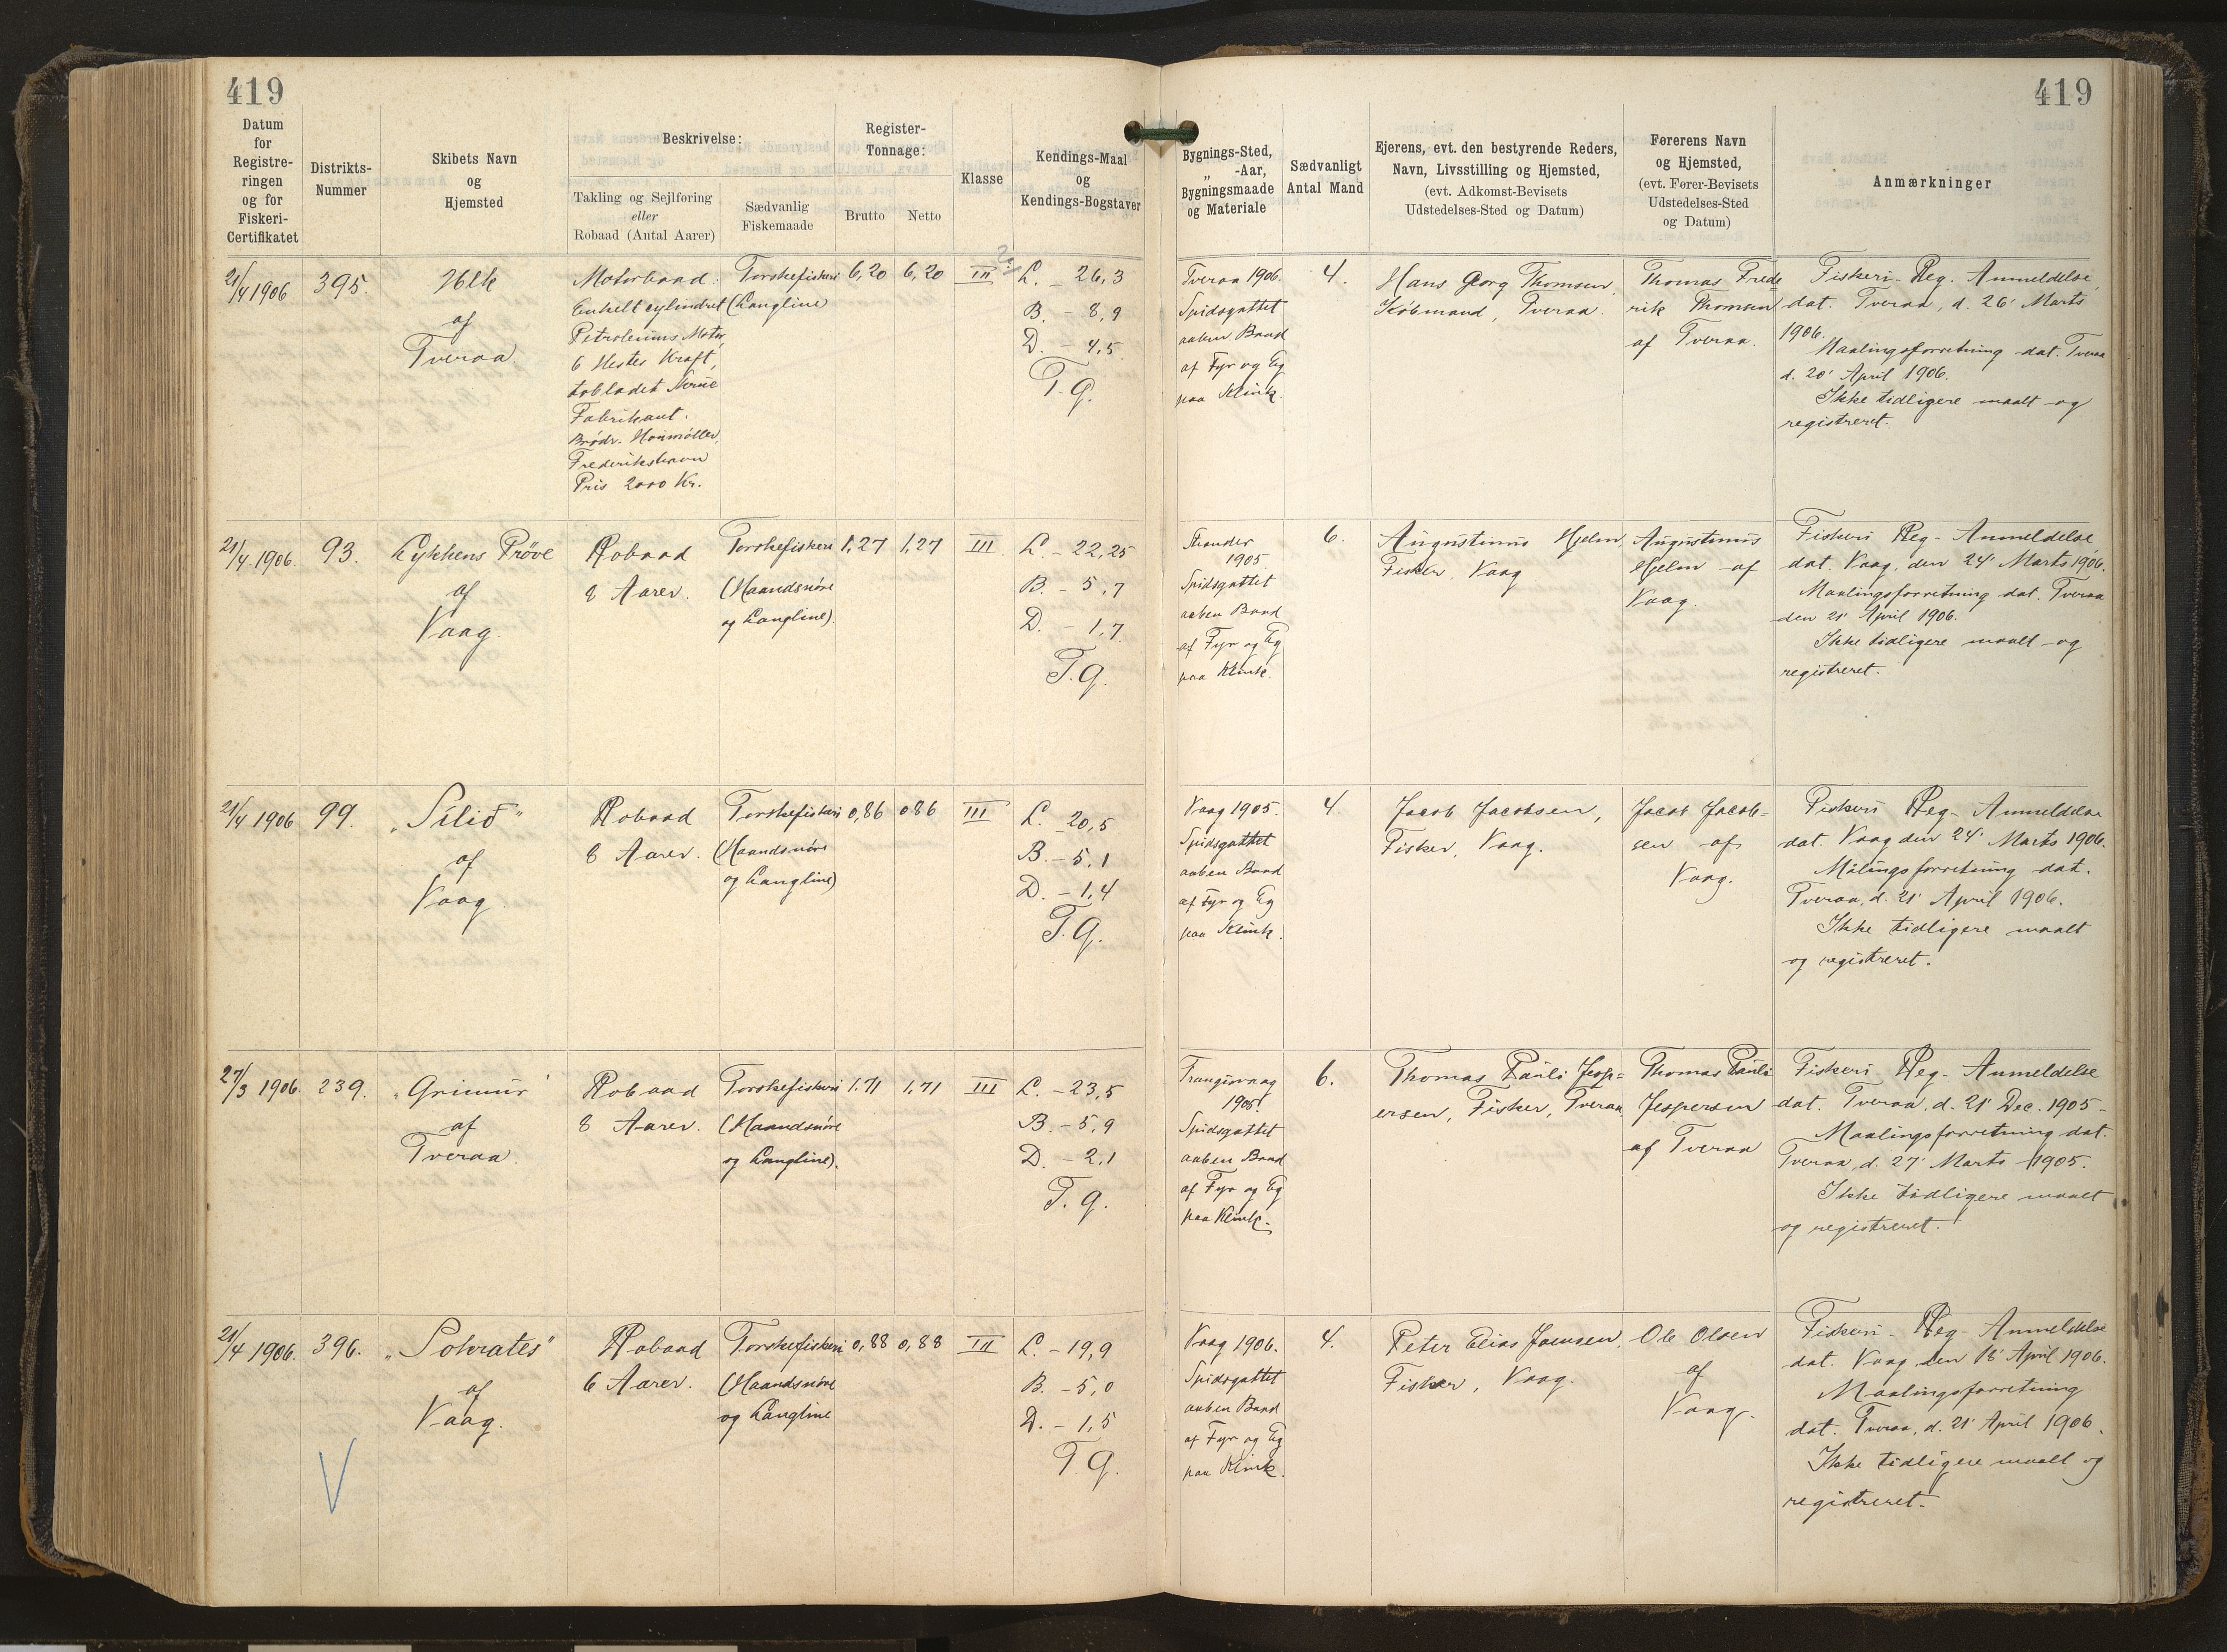 419
419
Datum
for
Registre-
ringen
og for
Fiskeri-
Certifikatet
Distrikts-
Nummer
Skibets Navn
og
Hjemsted
Beskrivelse:
Takling og Sejlføring
eller
Robaad (Antal Aarer)
Sædvanlig
Fiskemaade
Register-
Tonnage:
Brutto
Netto
Klasse
Kendings-Maal
og
Kendings-Bogstaver
Bygnings-Sted,
„ -Aar,
Bygningsmaade
og Materiale
Sædvanligt
Antal Mand
Ejerens, evt. den bestyrende Reders,
Navn, Livsstilling og Hjemsted,
(evt. Adkomst-Bevisets
Udstedelses-Sted og Datum)
Førerens Navn
og Hjemsted,
(evt. Fører-Bevisets
Udstedelses-Sted
og Datum)
Anmærkninger
21/4 1906
395.
af
Tveraa.
Motorbaad.
Enkelt cylindret
Petroleums Motor,
6 Hestes Kraft,
tobladet
Fabrikant.
Brødr. Houmøller,
Frederikshavn
Pris 2000 Kr.
Torskefiskeri
(Langline)
6,20
6,20
III
L. - 26,3
B. - 8,9
D. - 4,5
T.g.
Tveraa 1906.
Spidsgattet
aaben Baad
af Fyr og Eg
paa Klink.
4.
Hans Georg Thomsen,
Købmand, Tveraa.
Thomas Frede
rik Thomsen
af Tveraa.
Fiskeri-Reg. Anmeldelse,
dat. Tveraa, d. 26' Marts
1906.
Maalingsforretning dat. Tveraa
d. 20' April 1906.
Ikke tidligere maalt og
registreret.
21/4 1906.
93.
Lykkens Prøve
af
Vaag.
Robaad
8 Aarer.
Torskefiskeri
(Haandsnøre
og Langline).
1,27
1,27
III
L. - 22,25
B. - 5,7
D. - 1,7
T.g.
Strander
1905
Spidsgattet
aaben Baad
af Fyr og Eg
paa Klink.
6.
Augustinus Hjelm,
Fisker, Vaag
Augustinus
Hjelm af
Vaag.
Fiskeri Reg- Anmeldelse
dat. Vaag, den 24' Marts 1906.
Maalingsforretning dat. Tveraa
den 21' April 1906.
Ikke tidligere maalt og
registreret.
21/4 1906
99.
„Silið"
af
Vaag.
Robaad
8 Aarer.
Torskefiskeri
(Haandsnøre
og Langline)
0,86
0,86
III
L. 20,5
B. - 5,1
D. - 1,4
T.g.
Vaag 1905.
Spidsgattet
aaben Baad
af Fyr og Eg
paa Klink.
4.
Jacob Jacobsen,
Fisker, Vaag.
Jacob Jacob-
sen af
Vaag.
Fiskeri Reg- Anmeldelse
dat. Vaag den 24' Marts 1906.
Målingsforretning dat.
Tveraa, d. 21' April 1906.
Ikke tidligere maalt
og registreret.
27/3 1906
239.
„Grimur"
af
Tveraa.
Robaad
8 Aarer.
Torskefiskeri
(Haandsnøre
og Langline).
1,71
1,71
III
L. - 23,5
B. - 5,9
D. - 2,1
T.g.
Trangisvaag
1905.
Spidsgattet
aaben Baad
af Fyr og Eg
paa Klink.
6.
Thomas Pauli Jesp=
ersen, Fisker, Tveraa
Thomas Pauli
Jespersen
af Tveraa
Fiskeri-Reg- Anmeldelse
dat. Tveraa, d. 21' Dec. 1905-
Maalingsforretning dat.
Tveraa, d. 27' Marts 1905.
Ikke tidligere maalt
og registreret.
21/4 1906.
396.
„Sokrates"
af
Vaag.
Robaad
6 Aarer.
Torskefiskeri
(Haandsnøre
og Langline
0,88
0,88
III
L. - 19,9
B. - 5,0
D. - 1,5
T.g.
Vaag 1906.
Spidsgattet
aaben Baad
af Fyr og Eg
paa Klink.
4.
Peter Elias Joensen,
Fisker, Vaag.
Ole Olsen
af
Vaag.
Fiskeri- Reg- Anmeldelse
dat. Vaag den 18' April 1906.
Maalingsforretning
dat. Tveraa, d. 21' April 1906.
Ikke tidligere maalt og
registreret.